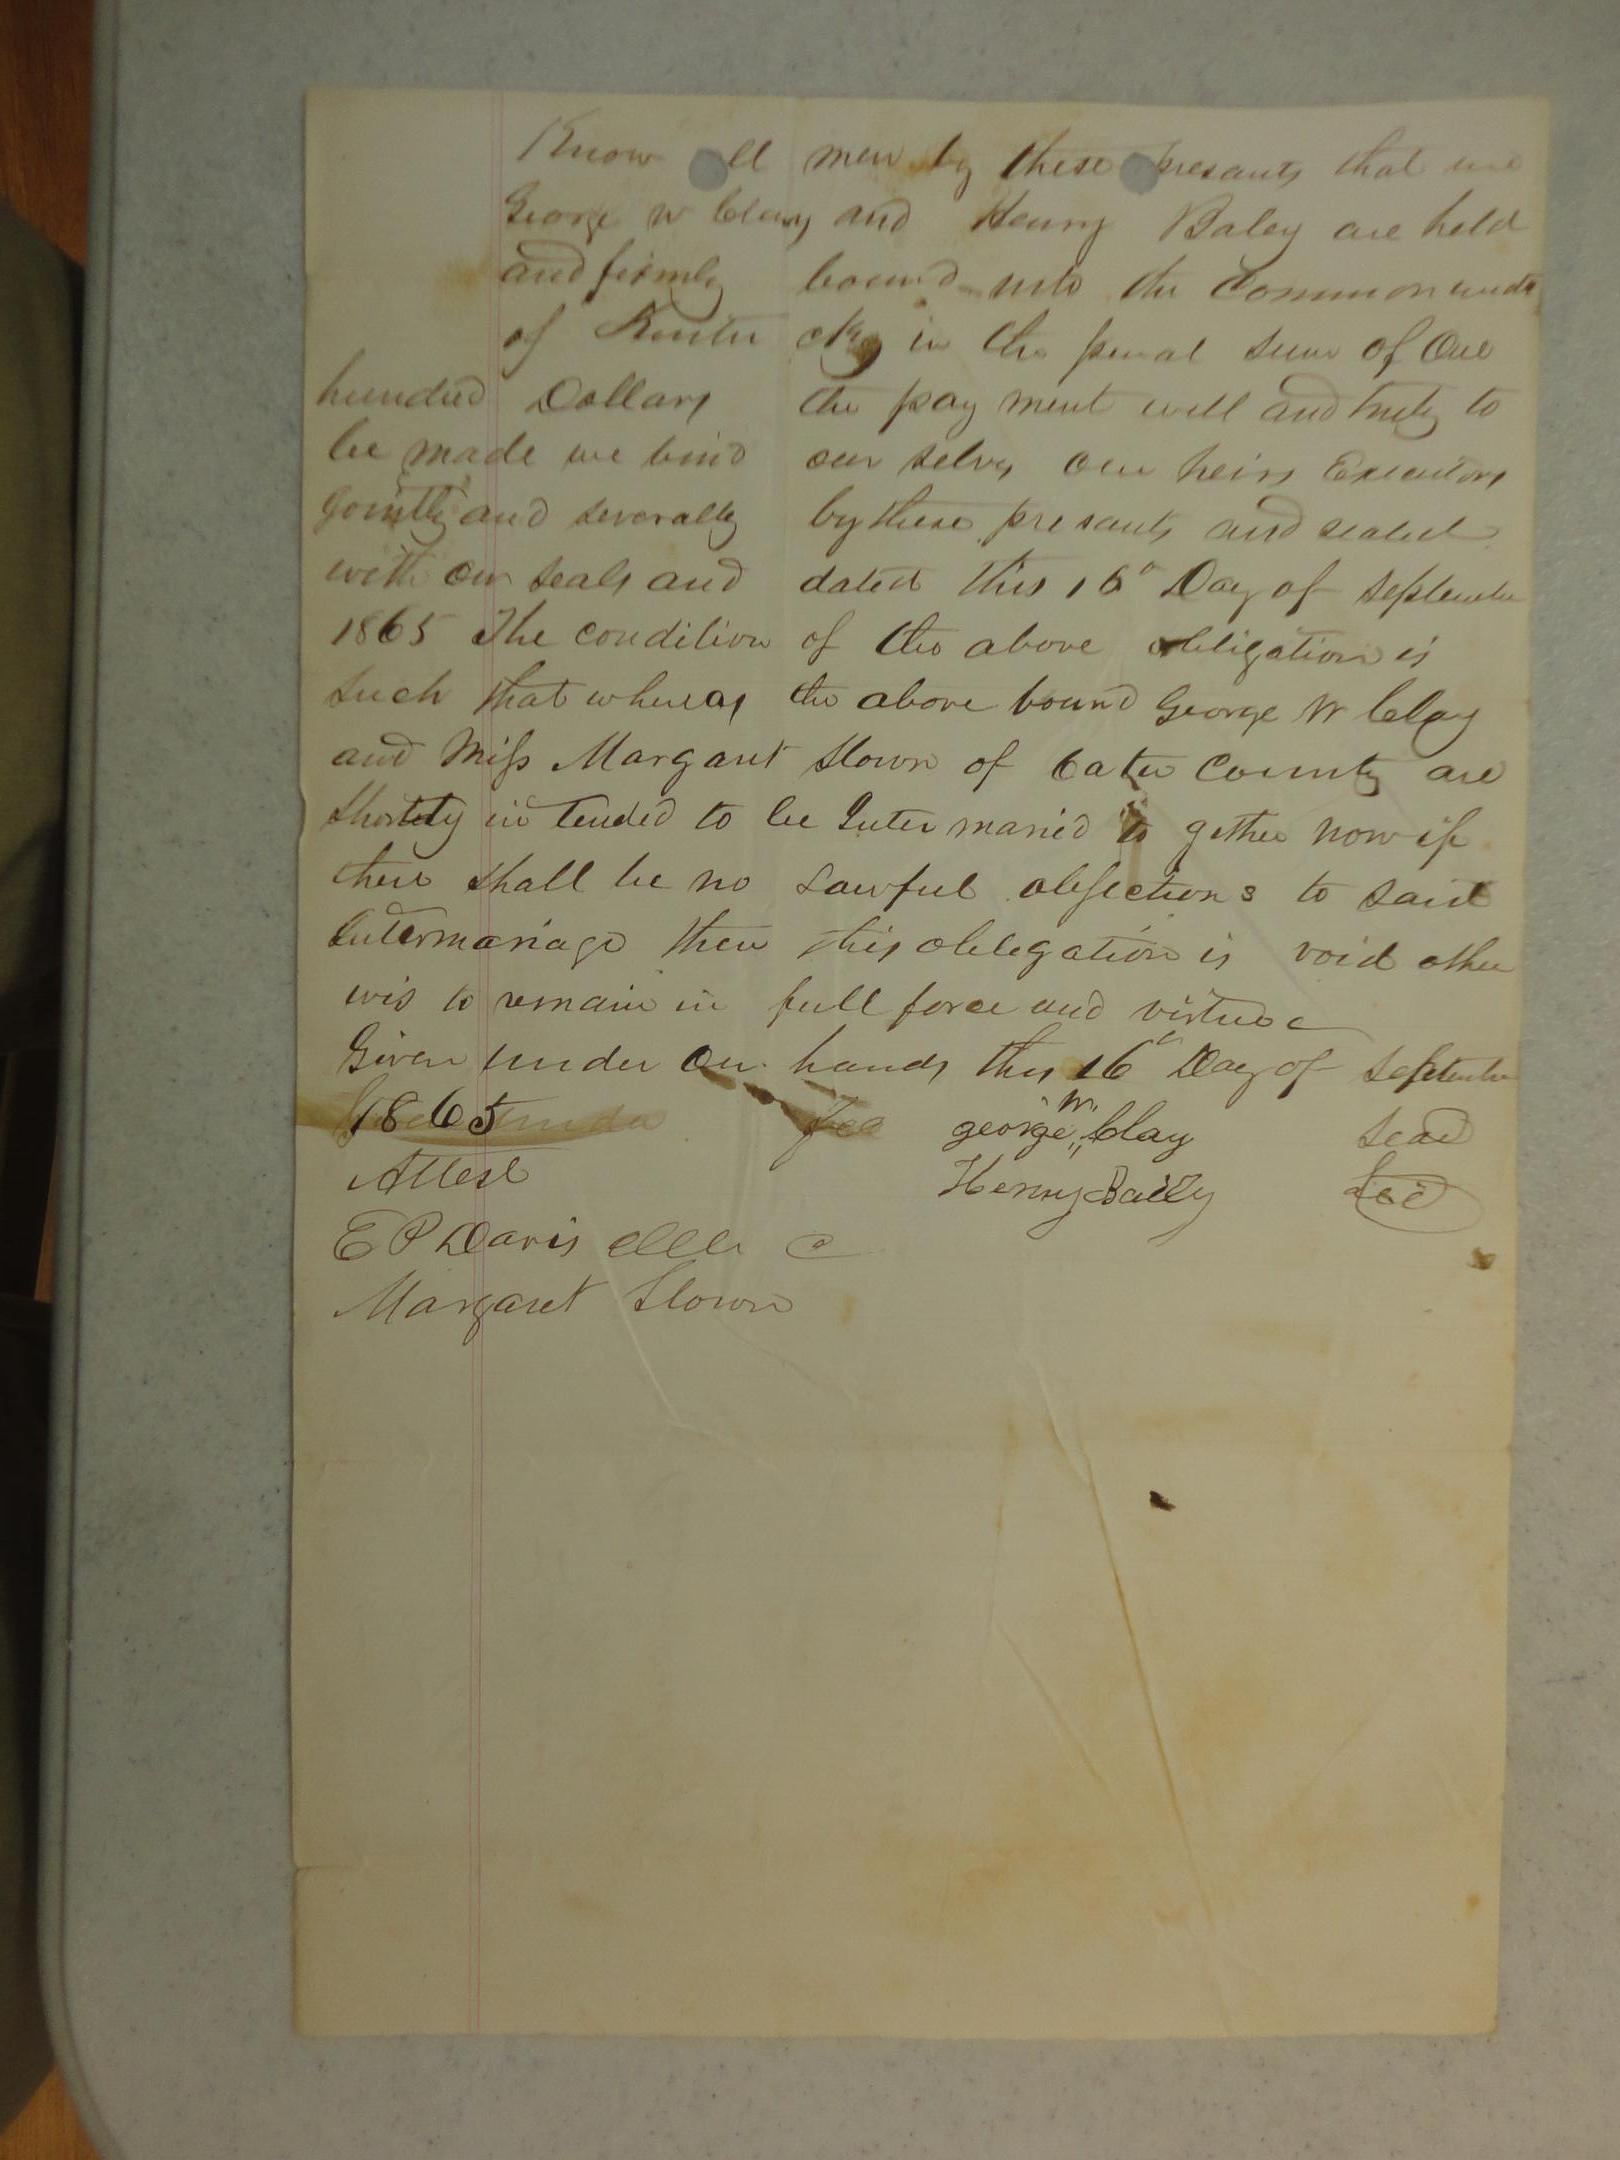 Know all men by these presants that we
George W Clay and Henry Baley are held
and firmly bound unto the Commonwealt
of Kentu cky in the penal sum of One
hundred Dollars the pay ment well and truly to
be made we bind our selvs our heirs Executors
Jointly and severally by these presants and sealed
with our seals and dated this 16" Day of September
1865 The condition of the above obligation is
such that wheras the above bound George W Clay
and Miss Margaret Slown of Cater County are
Shortely in tended to be Inter maried to gether now if
there shall be no Lawful objections to said
Intermariage then this obligation is void other
wis to remain in full force and virtue
Given under our hands this 16" Day of September
1865 george W Clay Seal
Attest Henry Baily Seal
E P Davis
Margaret Slown